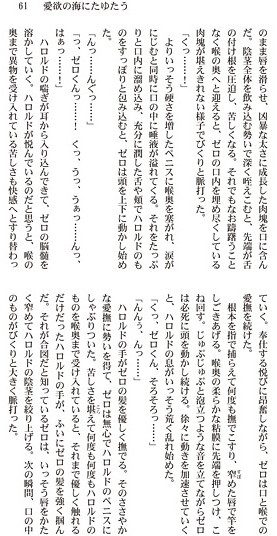 61　愛欲の海にたゆたう
のまま唇を滑らせ、凶暴な太さに成長した肉塊を口に含ん
だ。陰茎全体を飲み込む勢いで深く咥えこむと、先端が舌
の付け根を圧迫し、苦しくなる。それでもなお躊躇うこと
なく喉の奥へと迎えると、ゼロの口内を埋め尽くしている
肉塊が堪えきれない様子でびくりと脈打った。
「くっ……！」
よりいっそう硬さを増したペニスに喉奥を塞がれ、涙が
にじむと同時に口の中に唾液が溢れてくる。それをたっぷ
りと口内に溜め込み、充分に潤した舌や頬でハロルドのも
のをすっぽりと包み込むと、ゼロは頭を上下に動かし始め
た。
「んっ……んぐっ……」
「っ、ゼロくんっ……！　くっ、うっ、うぁっ……んっ、
はぁっ……！」
ハロルドの喘ぎが耳から入り込んできて、ゼロの脳髄を
溶かしていく。ハロルドが悦んでいるのだと思うと、喉の
奥まで異物を受け入れている苦しさも快感へとすり替わっ
ていく。奉仕する悦びに昂奮しながら、ゼロは口と喉での
愛撫を続けた。
根本を指で捕らえて何度も撫でこすり、窄めた唇で竿を
しごきあげる。喉奥の柔らかな粘膜に先端を押しつけ、こ
ね回す。じゅぶじゅぶと泡立つような音を立てながらゼロ
は必死に頭を動かし続ける。徐々に動きを加速させていく
と、ハロルドの息がいっそう荒く乱れ始めた。
「くっ、ゼロくん、そろそろっ……」
「んんぅ、んっ……」
ハロルドの手がゼロの髪を優しく撫でる。そのささやか
な愛撫に勢いを得て、ゼロは無心でハロルドのペニスに
しゃぶりついた。苦しさを堪えて何度も何度もハロルドの
ものを喉奥まで受け入れていると、それまで優しく触れる
だけだったハロルドの手が、ふいにゼロの髪を強く掴ん
だ。それが合図だと知っているゼロは、いっそう唇をかた
く窄めてハロルドの陰茎を絞り上げる。次の瞬間、口の中
のものがびくりと大きく脈打った。